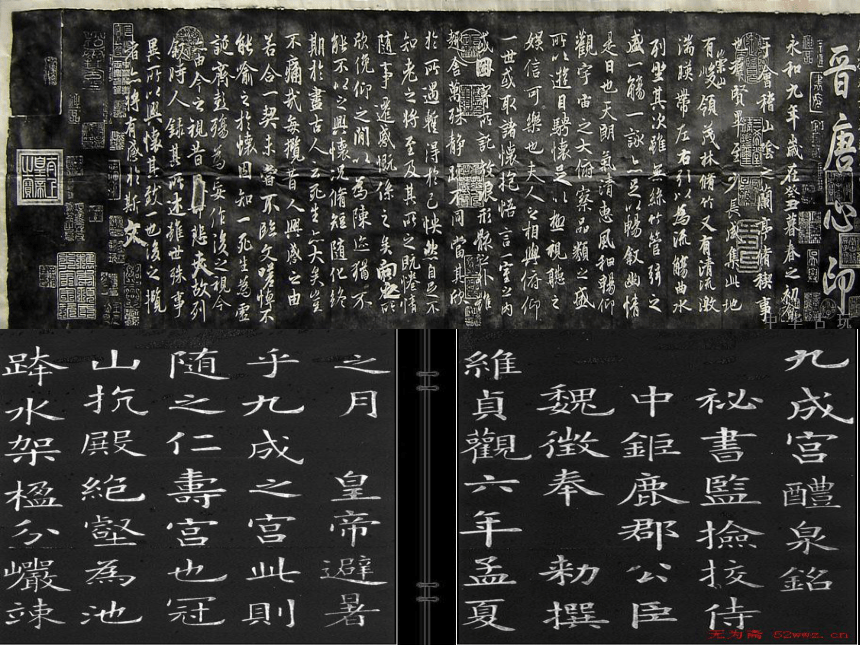 晋唐心印
永和九年歲在癸丑暮春之初會
于會稽山陰之蘭亭脩稧事
也群賢畢至少長咸集此地
有崇山峻領茂林脩竹又有清流激
湍暎帶左右引以為流觴曲水
列坐其次雖無絲竹管弦之
盛一觴一詠亦足以暢敘幽情
是日也天朗氣清惠風和暢仰
觀宇宙之大俯察品類之盛
所以遊目騁懷足以極視聽之
娛信可樂也夫人之相與俯仰
一世或取諸懷抱悟言一室之內
或因寄所託放浪形骸之外雖
趣舍萬殊静躁不同當其欣
於所遇暫得於己怏然自足不
知老之將至及其所之既惓情
隨事遷感慨係之矣向之所
欣俛仰之間以為陳迹猶不
能不以之興懷況脩短隨化終
期於盡古人云死生亦大矣豈
不痛哉每攬昔人興感之由
若合一契未嘗不臨文嗟悼不
能喻之於懷固知一死生為虛
誕齊彭殤為妄作後之視今
亦由今之視昔悲夫故列
敘時人錄其所述雖世殊事
異所以興懷其致一也後之攬
者亦將有感於斯文
九成宮醴泉銘
祕書監撿挍侍
中鉅鹿郡公臣
魏徵奉 勑撰
維貞觀六年孟夏
之月 皇帝避暑
乎九成之宮此則
随之仁壽宮也冠
山抗殿絕壑為池
跨水架楹分巖竦
无为斋 52wwz.cn